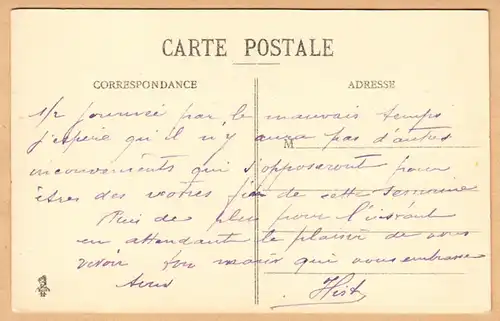 CARTE POSTALE
CORRESPONDANCE
ADRESSE
M
1/2 journée par le mauvais temps
j'espère qu'il n'y aura pas d'autres
inconvénients qui s'opposeront pour
êtres des votres fin de cette semaine
Rien de plus pour l'instant
en attendant le plaisir de vous
revoir Ton mari qui vous embrasse